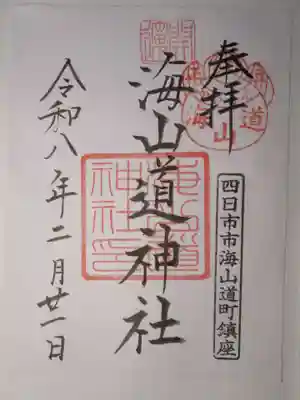 奉拝
四日市市海山道町鎮座
海山道神社
海山道神社印
令和八年二月廿一日